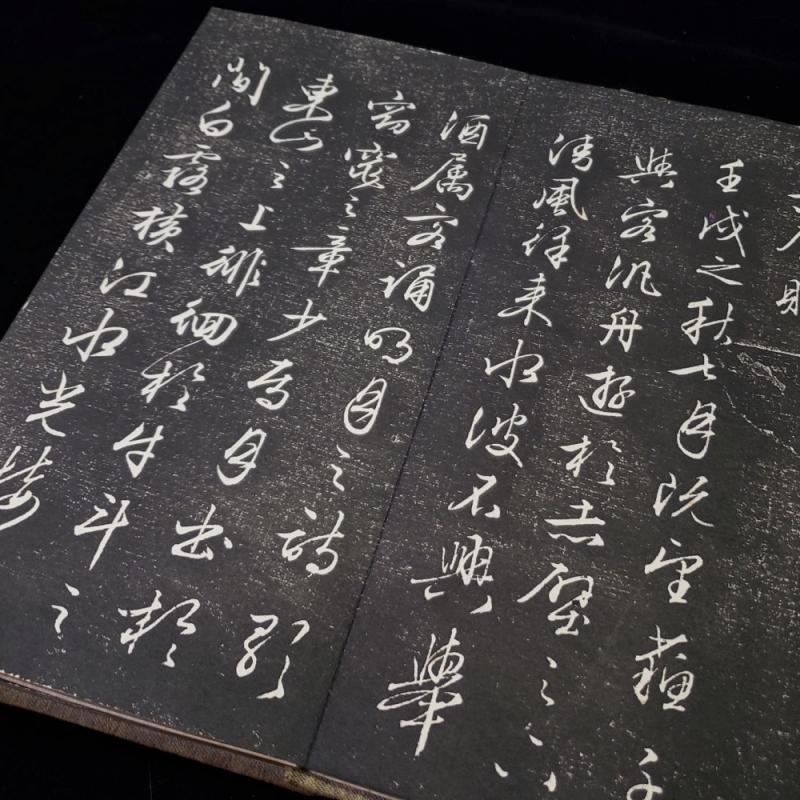 壬戌之秋七月既望蘇子
與客汎舟遊於赤壁之下
清風徐来水波不興舉
酒属客誦明月之詩歌
窈窕之章少焉月出於
東山之上徘徊於牛斗之
間白露横江水光接